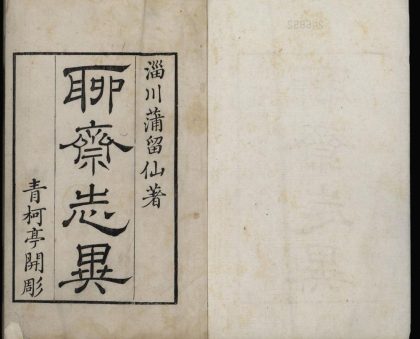 淄川蒲留仙著
聊齋志異
青柯亭開彫